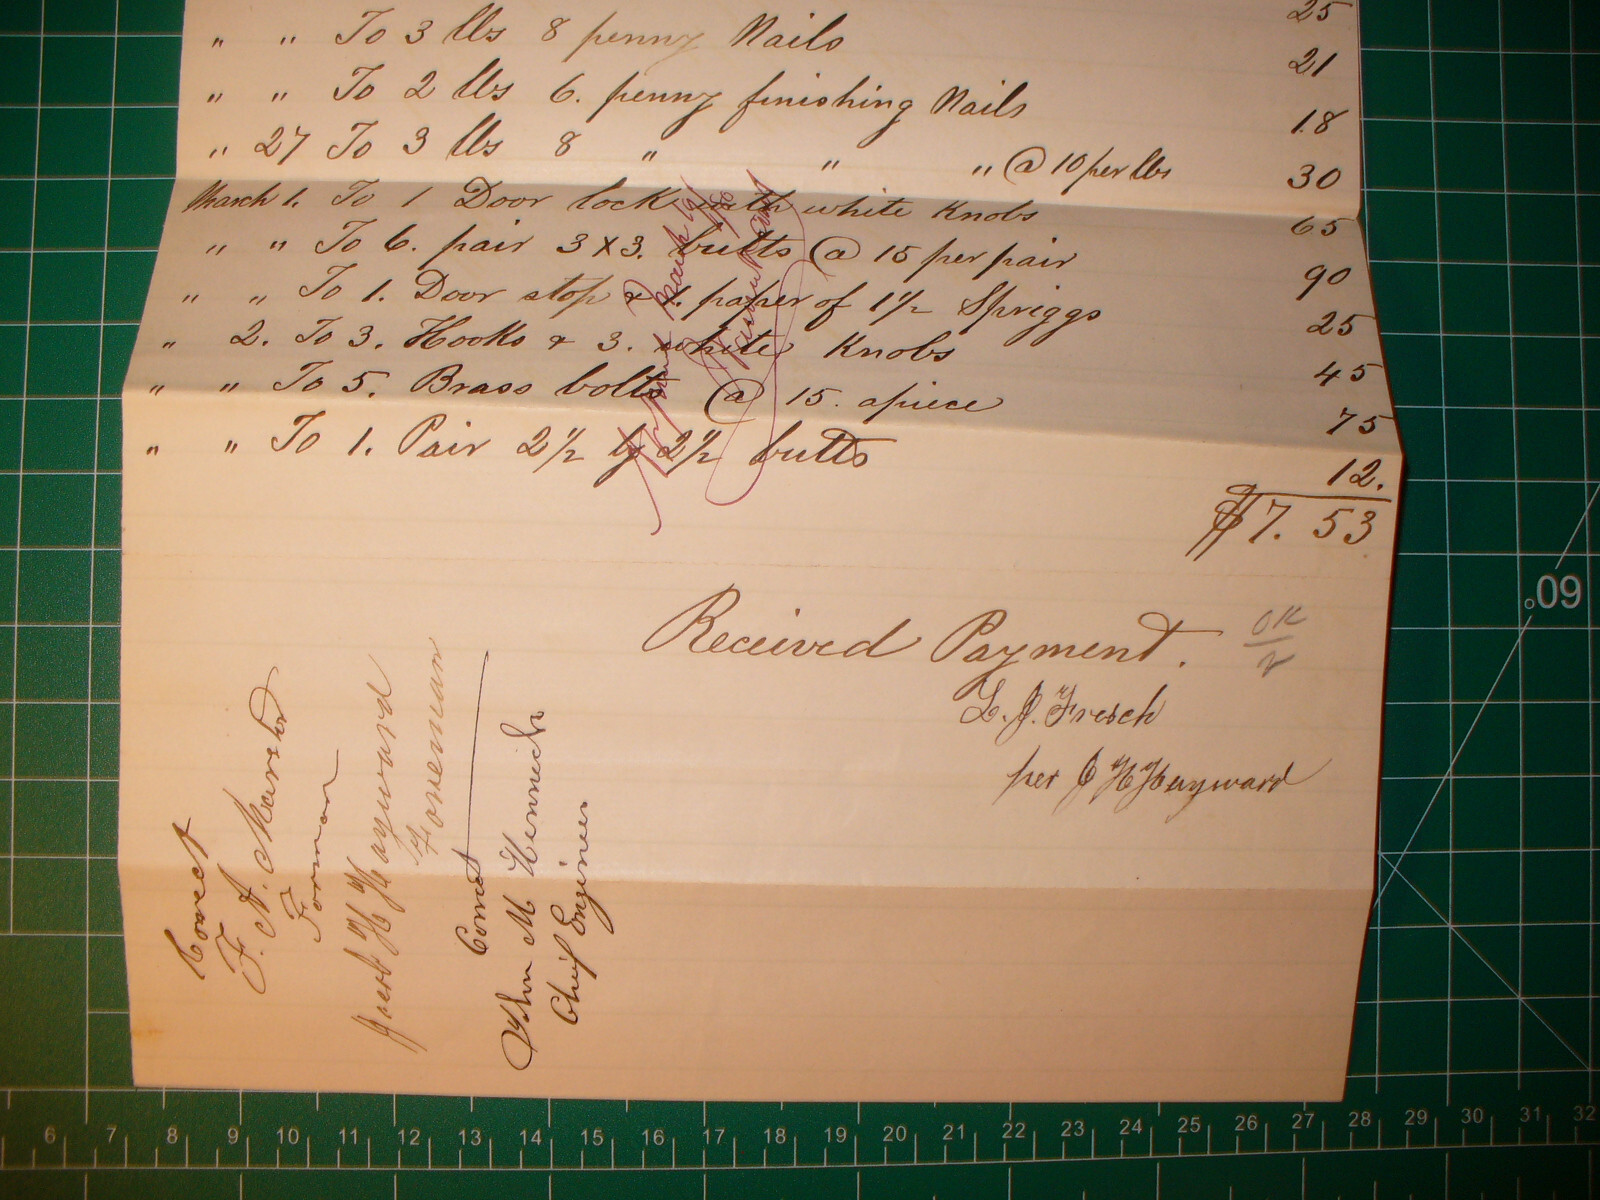 25
" " To 3 lbs 8 penny Nails 21
" " To 2 lbs 6. penny finishing Nails 18
" 27 To 3 lbs 8 " " " @ 10 per lbs 30
March 1. To 1 Door lock with white Knobs 65
" " To 6. pair 3 x 3. butts @ 15 per pair 90
" " To 1. Door stop & 1. paper of 1 1/2 Spriggs 25
" 2. To 3. Hooks & 3. white Knobs 45
" " To 5. Brass bolts @ 15. apiece 75
" " To 1. Pair 2 1/2 by 2 1/2 butts 12.
$7. 53
Received Payment.
OK
L. J. Fresch
per J H Hayward
Correct
F. A. Marston
Forman
Jacob H Hayward
Foreman
Correct
John M Hennich
Chief Engineer
.09
6 7 8 9 10 11 12 13 14 15 16 17 18 19 20 21 22 23 24 25 26 27 28 29 30 31 32